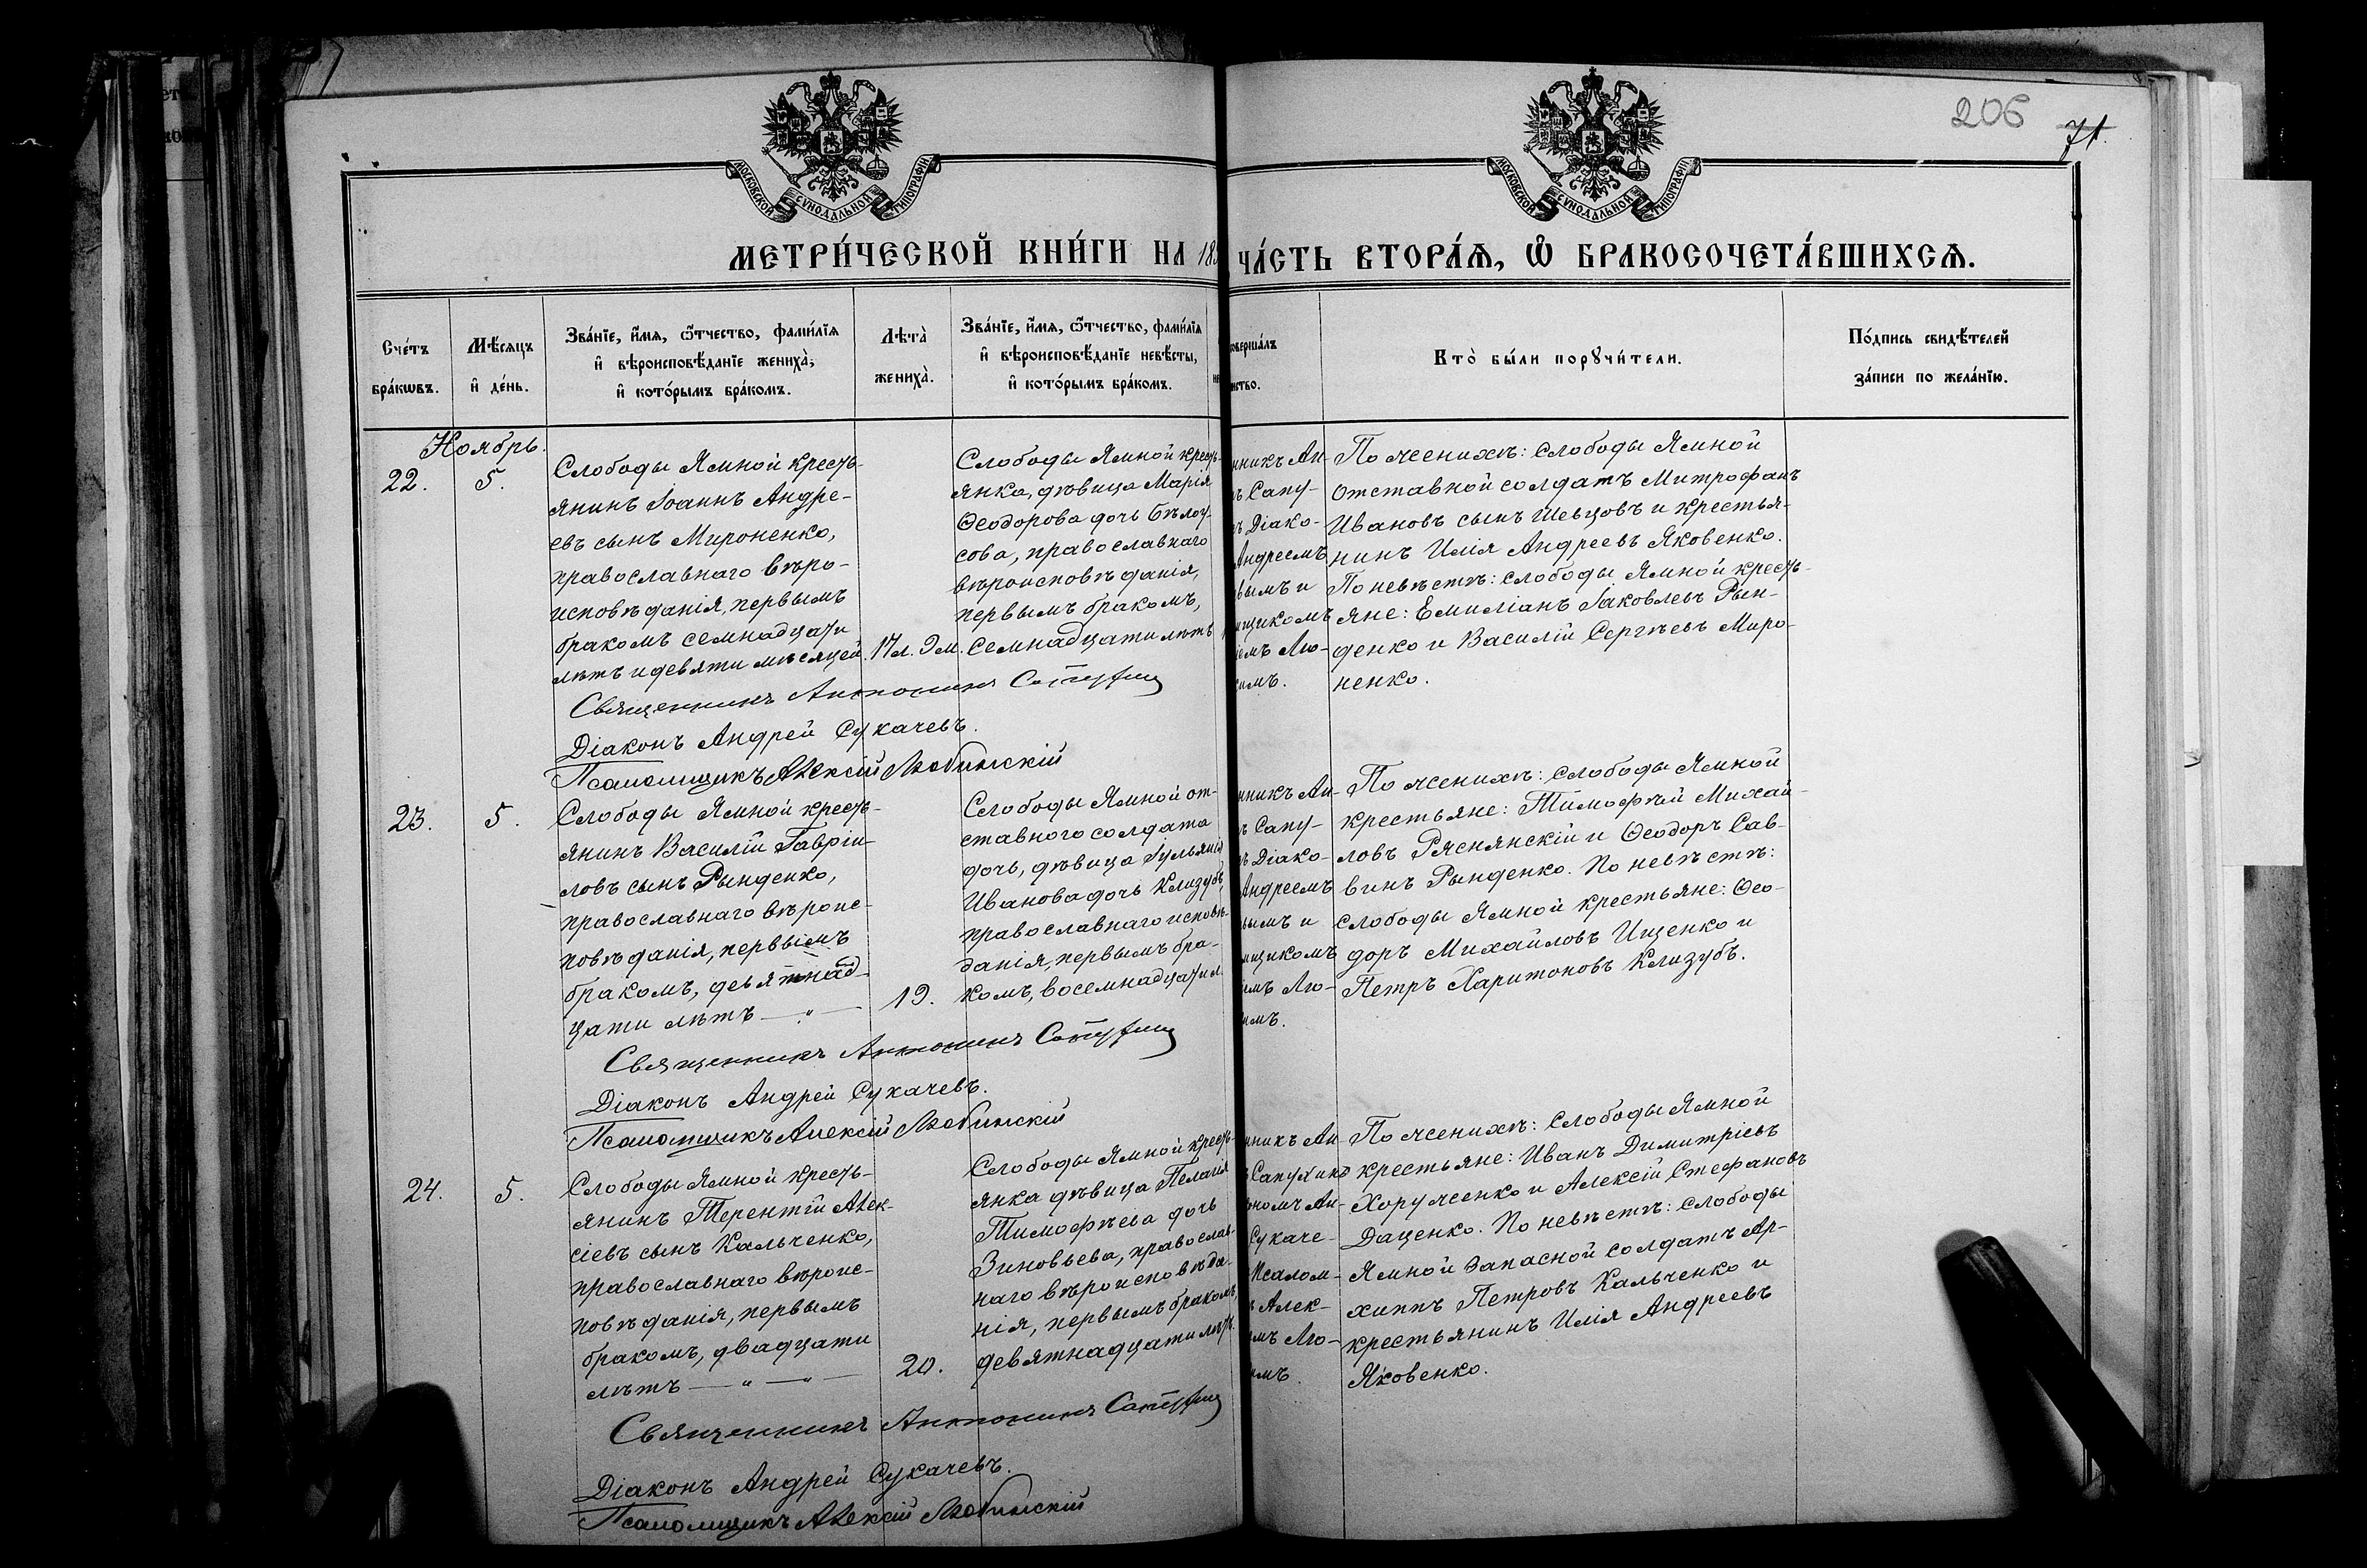 206
71.
МОСКОВСКОЙ СѴНОДАЛЬНОЙ ТИПОГРАФІИ
МОСКОВСКОЙ СѴНОДАЛЬНОЙ ТИПОГРАФІИ
МЕТРИ́ЧЕСКОЙ КНИ́ГИ НА 18
ЧА́СТЬ ВТОРА́Ѧ, Ѡ҆ БРАКОСОЧЕТА́ВШИХСѦ.
Сче́тъ
бра́кѡвъ.
Мѣ́сѧцъ
и҆ де́нь.
Зва́нїе, и҆́мѧ, ѻ҆́тчество, фами́лїѧ
и҆ вѣроисповѣ́данїе жениха̀,
и҆ кото́рымъ бра́комъ.
Лѣта̀
жениха̀.
Зва́нїе, и҆́мѧ, ѻ҆́тчество, фами́лїѧ
и҆ вѣроисповѣ́данїе невѣ́сты,
и҆ кото́рымъ бра́комъ.
овершалъ
нство.
Кто̀ бы́ли порꙋчи́тели.
По́дпись свидѣ́телей
за́писи по жела́нїю.
Ноябрь.
22.
5.
Слободы Ямной кресть-
янинъ Іоаннъ Андре-
евъ сынъ Мироненко,
православнаго вѣро-
исповѣданія, первымъ
бракомъ семнадцати
лѣтъ и девяти мѣсяцей.
17 л. 9 м.
Слободы Ямной кресть-
янка, дѣвица Марія
Ѳеодорова дочь Бѣлоу-
сова, православнаго
вѣроисповѣданія,
первымъ бракомъ,
семнадцати лѣтъ
нникъ Ан-
ъ Сапу-
ъ Діако-
Андреемъ
вымъ и
мщикомъ
емъ Лю-
симъ.
По женихѣ: слободы Ямной
отставной солдатъ Митрофанъ
Ивановъ сынъ Шевцовъ и крестья-
нинъ Илія Андреевъ Яковенко.
По невѣстѣ: слободы Ямной кресть-
яне: Емиліанъ Іаковлевъ Рын-
денко и Василій Сергѣевъ Миро-
ненко.
Священникъ Антонинъ Сапухин
Діаконъ Андрей Сукачевъ.
Псаломщикъ Алексій Любинскій
23.
5.
Слободы Ямной кресть-
янинъ Василій Гавріи-
ловъ сынъ Рынденко,
православнаго вѣроис-
повѣданія, первымъ
бракомъ, девятнад-
цати лѣтъ — " —
19.
Слободы Ямной от-
ставного солдата
дочь, дѣвица Іульянія
Иванова дочь Клизубъ,
православнаго исповѣ-
данія, первымъ бра-
комъ, восемнадцати л.
нникъ Ан-
ъ Сапу-
ъ Діако-
Андреемъ
вымъ и
мщикомъ
емъ Лю-
имъ.
По женихѣ: слободы Ямной
крестьяне: Тимофей Михай-
ловъ Ряснянскій и Ѳеодоръ Сав-
винъ Рынденко. По невѣстѣ:
слободы Ямной крестьяне: Ѳео-
доръ Михайловъ Ищенко и
Петръ Харитоновъ Клизубъ.
Священникъ Антонинъ Сапухин
Діаконъ Андрей Сукачевъ.
Псаломщикъ Алексій Любинскій
24.
5.
Слободы Ямной кресть-
янинъ Терентій Алек-
сіевъ сынъ Кальченко,
православнаго вѣроис-
повѣданія, первымъ
бракомъ, двадцати
лѣтъ — " — " —
20.
Слободы Ямной кресть-
янка дѣвица Пелагія
Тимофѣева дочь
Зиновьева, православ-
наго вѣроисповѣда-
нія, первымъ бракомъ,
девятнадцати лѣтъ.
нникъ Ан-
Сапухинъ
ономъ Ан-
Сукаче-
Псалом-
ъ Алек-
мъ Лю-
имъ.
По женихѣ: слободы Ямной
крестьяне: Иванъ Димитріевъ
Хоруженко и Алексій Стефановъ
Даценко. По невѣстѣ: слободы
Ямной запасной солдатъ Ар-
хиппъ Петровъ Кальченко и
крестьянинъ Илія Андреевъ
Яковенко.
Священникъ Антонинъ Сапухин
Діаконъ Андрей Сукачевъ.
Псаломщикъ Алексій Любинскій